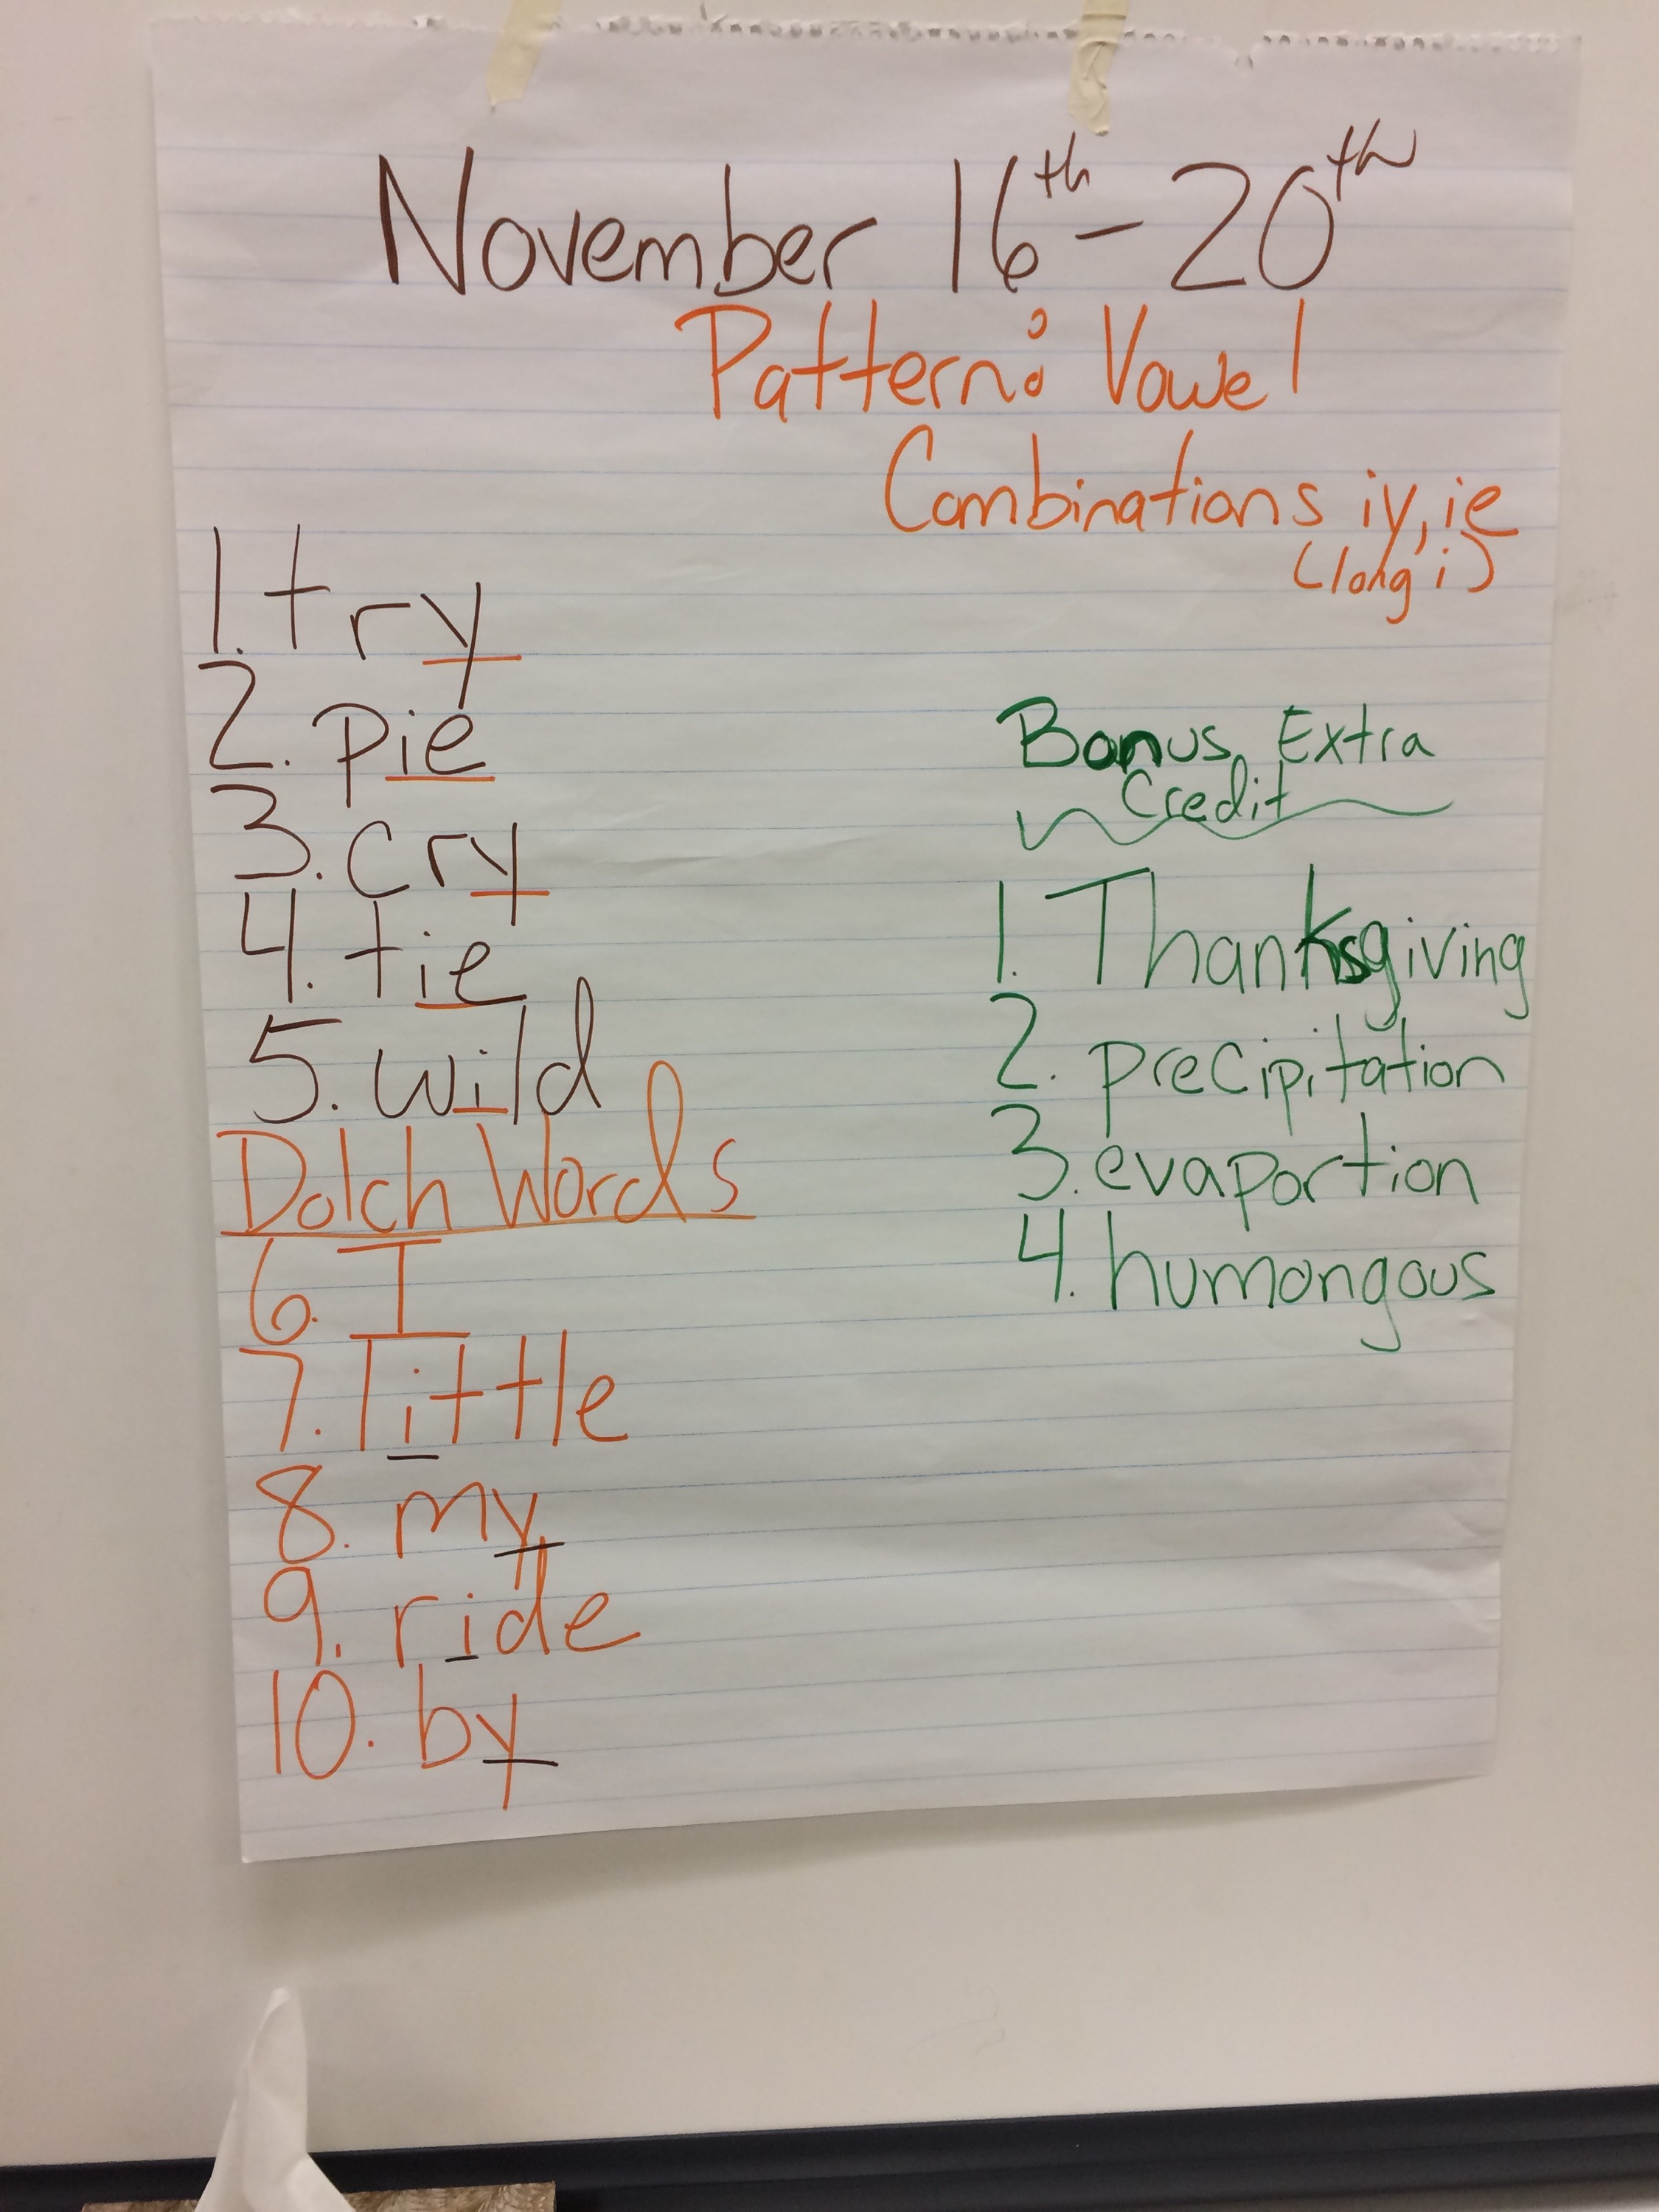 November 16th - 20th
Pattern: Vowel
Combinations iy, ie
(long i)
1. try
2. pie
3. cry
4. tie
5. wild
Dolch Words
6. I
7. little
8. my
9. ride
10. by
Bonus Extra
Credit
1. Thanksgiving
2. precipitation
3. evaportion
4. humongous